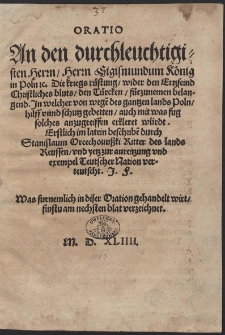 ORATIO
An den durchleuchtigi-
sten Herrn/ Herrn Sigismundum König
in Poln ꝛc. Die kriegs rüstung/ wider den Ertzfeind
Christliches bluts/ den Türcken/ fürzunemen belan-
gend. In welcher von wegē des gantzen lands Poln/
hilff vnnd schutz gebetten/ auch mit was fug
solches anzugreiffen erkleret würdt.
Erstlich im latein beschribē durch
Stanislaum Orechouußki Ritter des lands
Reussen/ vnd yetz zur anreitzung vnd
exempel Teutscher Nation ver-
teutscht. J. F.
Was fürnemlich in diser Oration gehandelt wirt/
findstu am nechsten blat verzeichnet.
M. D. XLIIII.